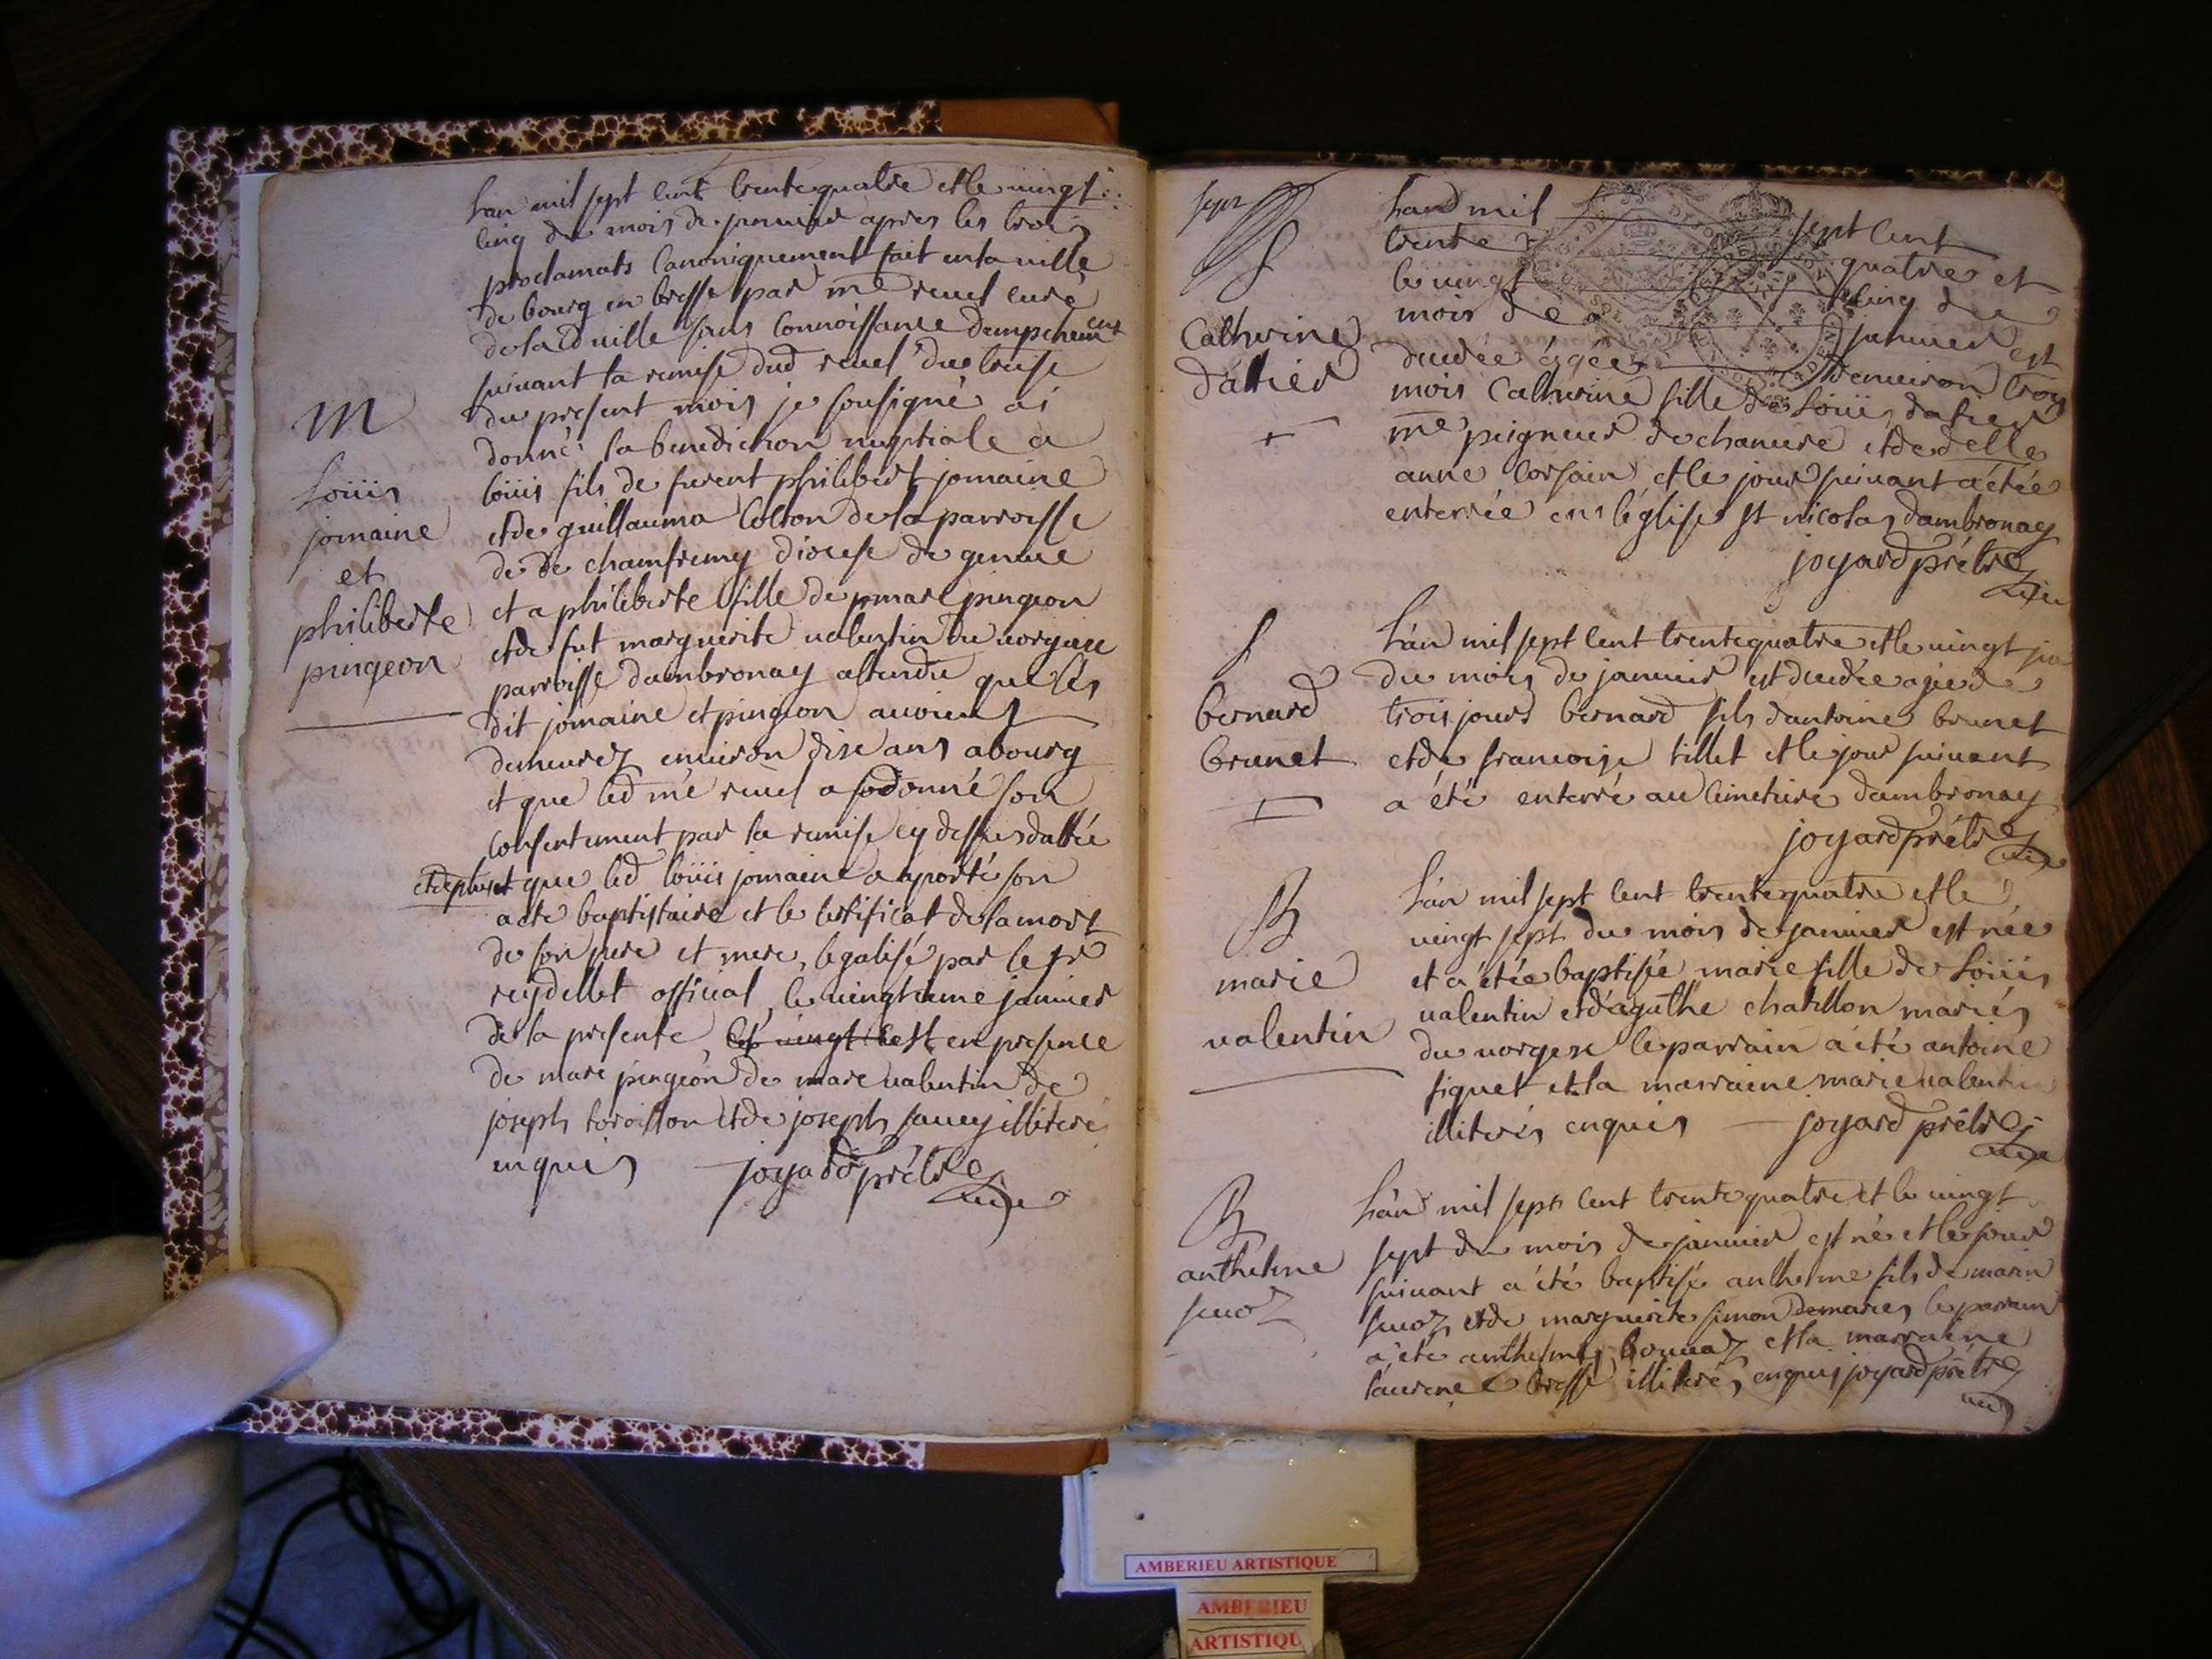 Lan mil sept cent trente quatre et le vingt
cinq du mois de janvier apres les trois
proclamats canoniquement fait en la ville
de bourg en bresse par me revel curé
de lad ville sans connoissance dempchement
suivant la remise dud revel du treise
du present mois je sousigné ai
donné la benediction nuptiale a
M
Loüis
jomaine
et
philiberte
pingeon
loüis fils de furent philibert jomaine
et de guillauma Cotton de la parroisse
de de chamfremy diocese de geneve
et a philiberte fille de marc pingeon
et de fut marguerite valentin du vorgese
parroisse dambronay attendu que les
dit jomaine et pingeon avoient
demeurez environ dise ans a bourg
et que led me revel a donné son
consentement par la remise cy dessus dattée
et de plus et que led loüis jomaine a aporté son
acte baptistaire et le certificat de la mort
de son pere et mere, legalisé par le sr
reydellet official, le vingtieme janvier
de la presente, en presence
de marc pingeon de marc valentin de
joseph et de joseph savey illiteré
enquis joyard prêtre
sept
S
Catherine
datier
Land mil sept cent
trente quatre et
le vingt cinq du
mois de janvier est
decedée ágée denviron trois
mois Catherine fille de Loüis datier
me peigneur de chanvre et de delle
anne Corsain et le jour suivant a étée
enterrée en l'église st nicolas dambronay
joyard prêtre
S
bernard
brunet
Lán mil sept cent trente quatre et le vingt
du mois de janvier est decedée agée de
trois jours bernard fils dantoine brunet
et de francoise tillet et le jour suivant
a été enterré au cimetiere dambronay
joyard prêtre
B
marie
valentin
Lán mil sept cent trente quatre et le
vingt sept du mois de janvier est née
et a étée baptisée marie fille de Loüis
valentin et d'agathe chatillon mariés
du vorgese le parrain a été antoine
fiquet et la marraine marie valentin
illiterés enquis joyard prêtre
B
anthelme
suvoz
Lán mil sept cent trente quatre et le vingt
sept du mois de janvier est né et le jour
suivant a été baptisé anthelme fils de marin
suvoz et de marguerite simon mariés le parrain
a été anthelme bonnaz et la marraine
bresse illiterés enquis joyard prêtre
AMBERIEU ARTISTIQUE
AMBERIEU
ARTISTIQU